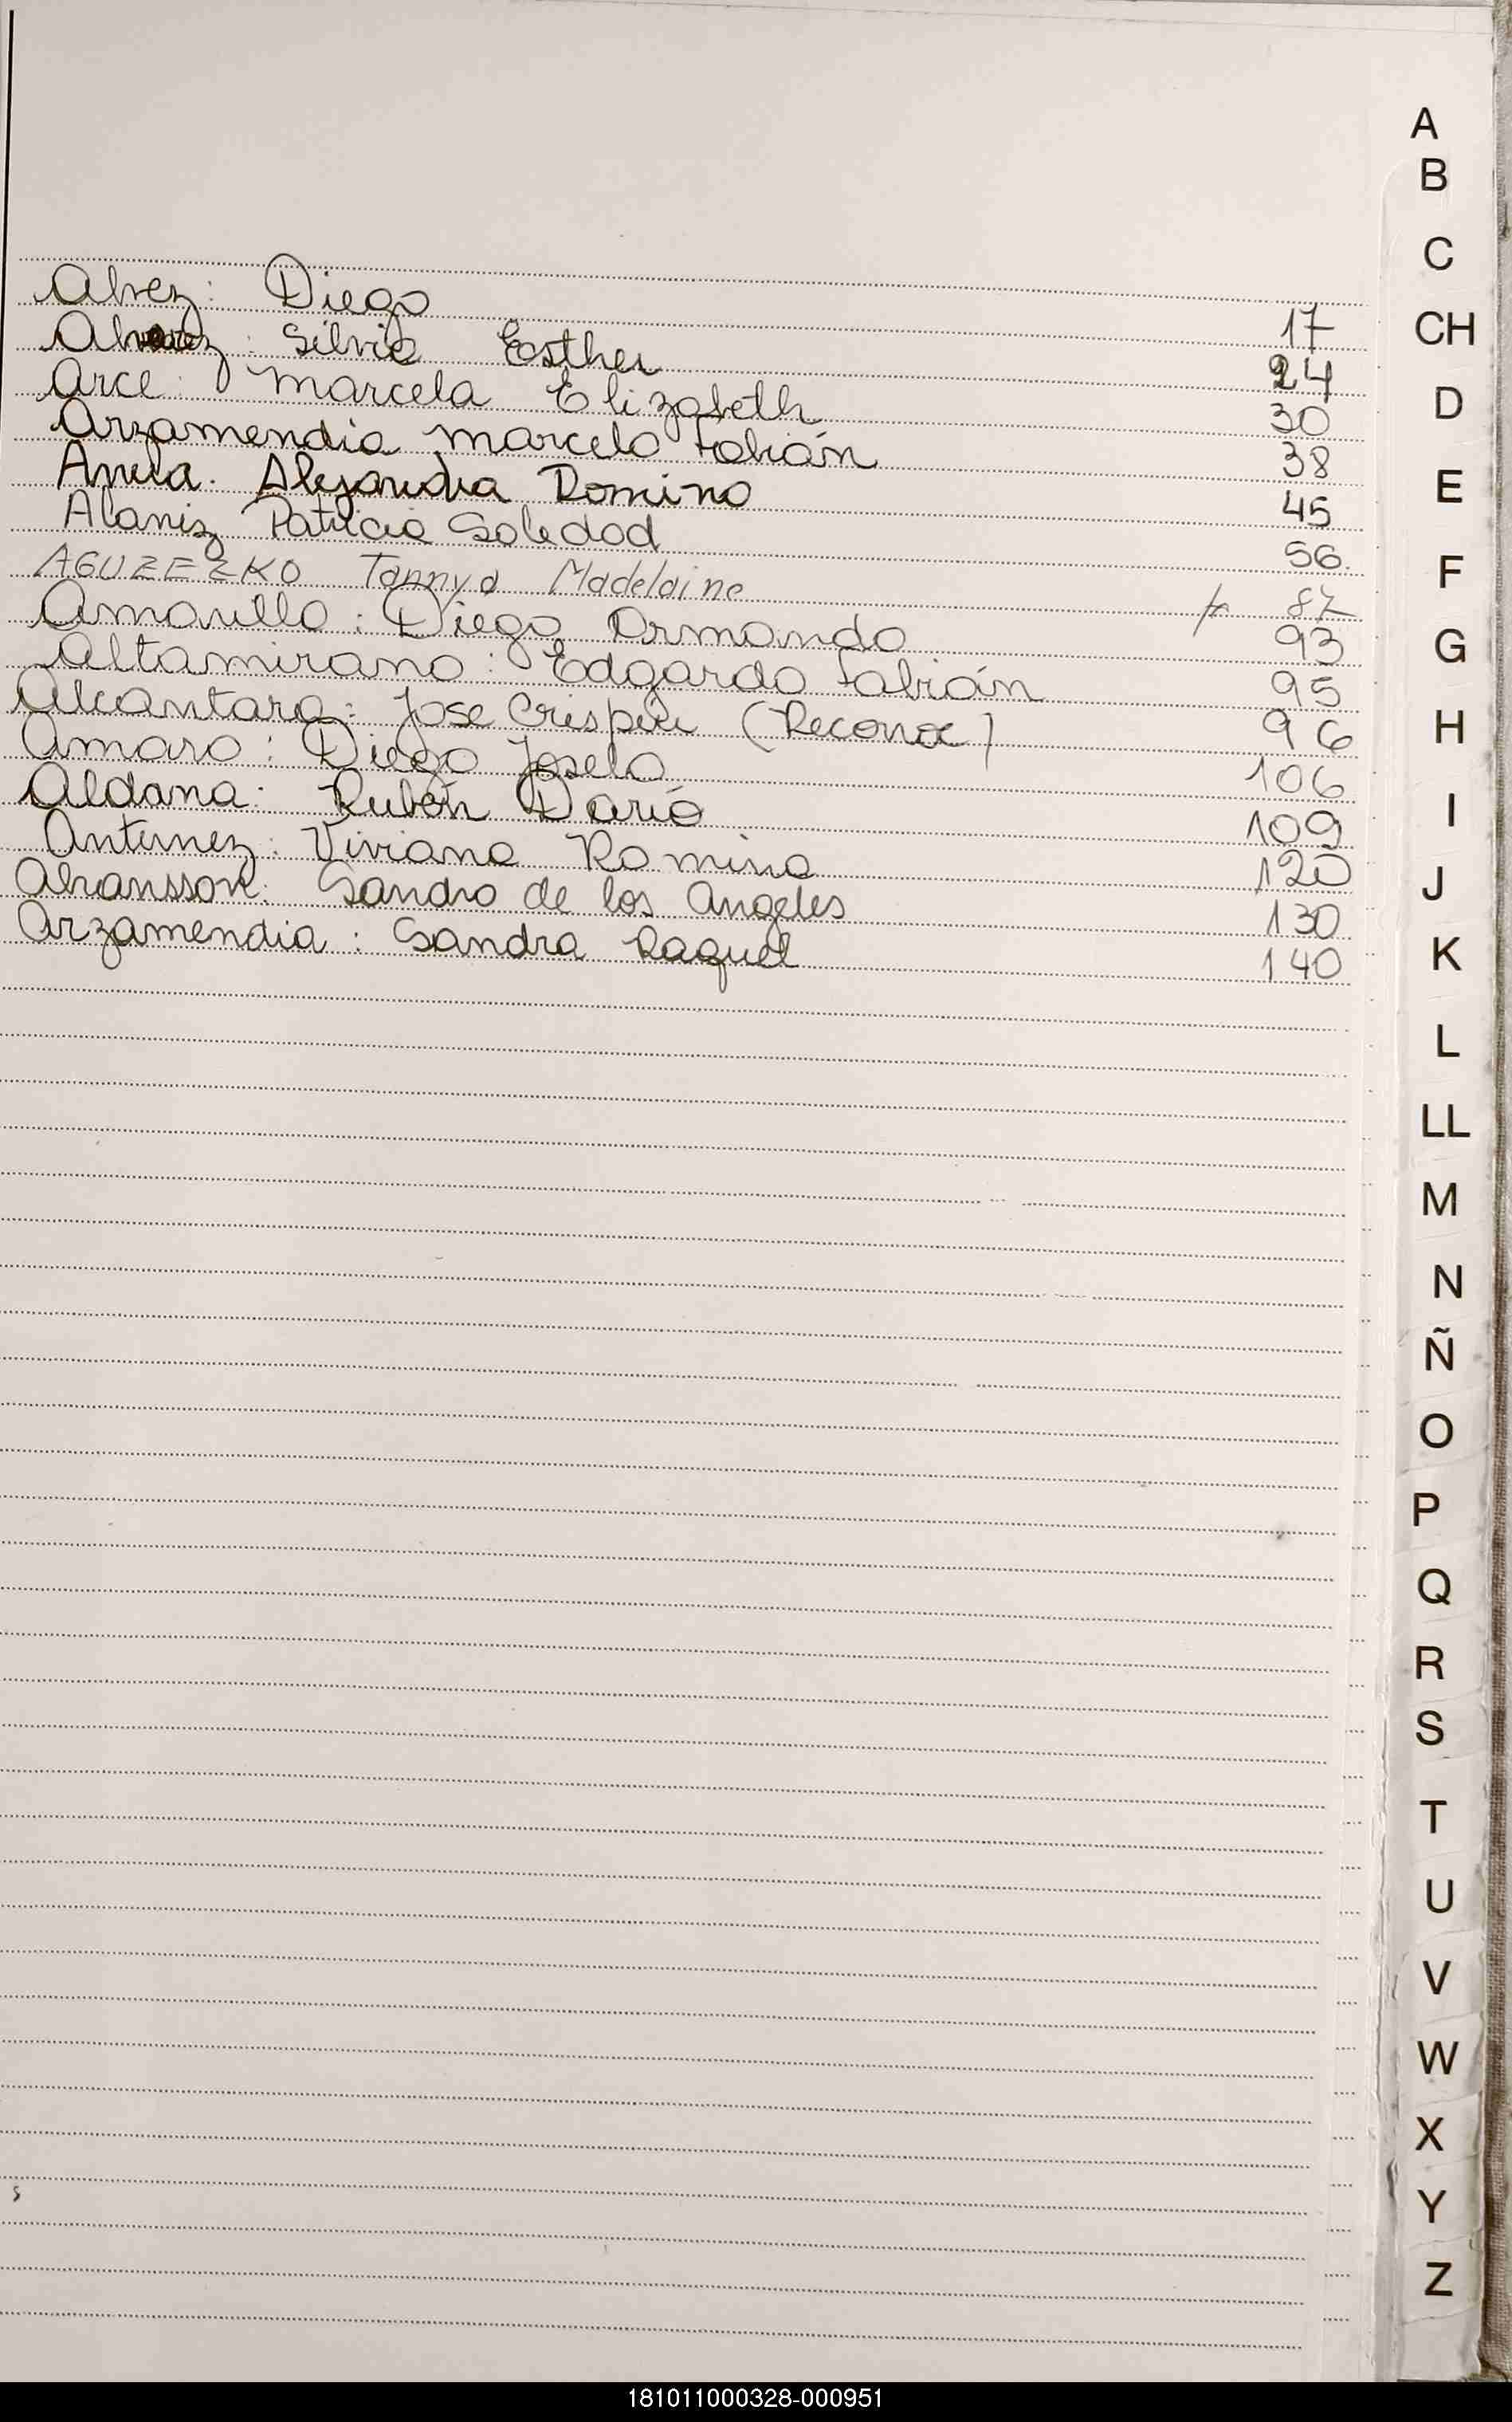 Alvez: Diego 17
Alvarez: Silvia Esther 24
Arce: Marcela Elizabeth 30
Arzamendia Marcelo Fabián 38
Alejandra Romina 45
Alaniz Patricia Soledad 56.
AGUZEZKO Tannya Madelaine 87
Amarillo: Diego Armando 93
Altamirano: Edgardo Fabián 95
Alcantara: Jose Crispin (Reconoc) 96
Amaro: Diego Joselo 106
Aldana: Rubén Darío 109
Antunez: Viviana Romina 120
Sandra de los Angeles 130
Arzamendia: Sandra Raquel 140
A
B
C
CH
D
E
F
G
H
I
J
K
L
LL
M
N
Ñ
O
P
Q
R
S
T
U
V
W
X
Y
Z
181011000328-000951